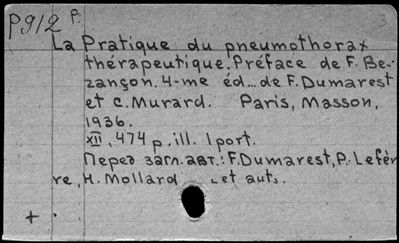 P912 P.
3
La Pratique du pneumothorax
thérapeutique. Préface de F. Be-
zançon. 4-me éd... de F. Dumarest
et C. Murard. Paris, Masson,
1936.
XII, 474 p., ill. 1 port.
Перед загл. авт.: F. Dumarest, P. Lefèv
re, H. Mollard et aut.
+